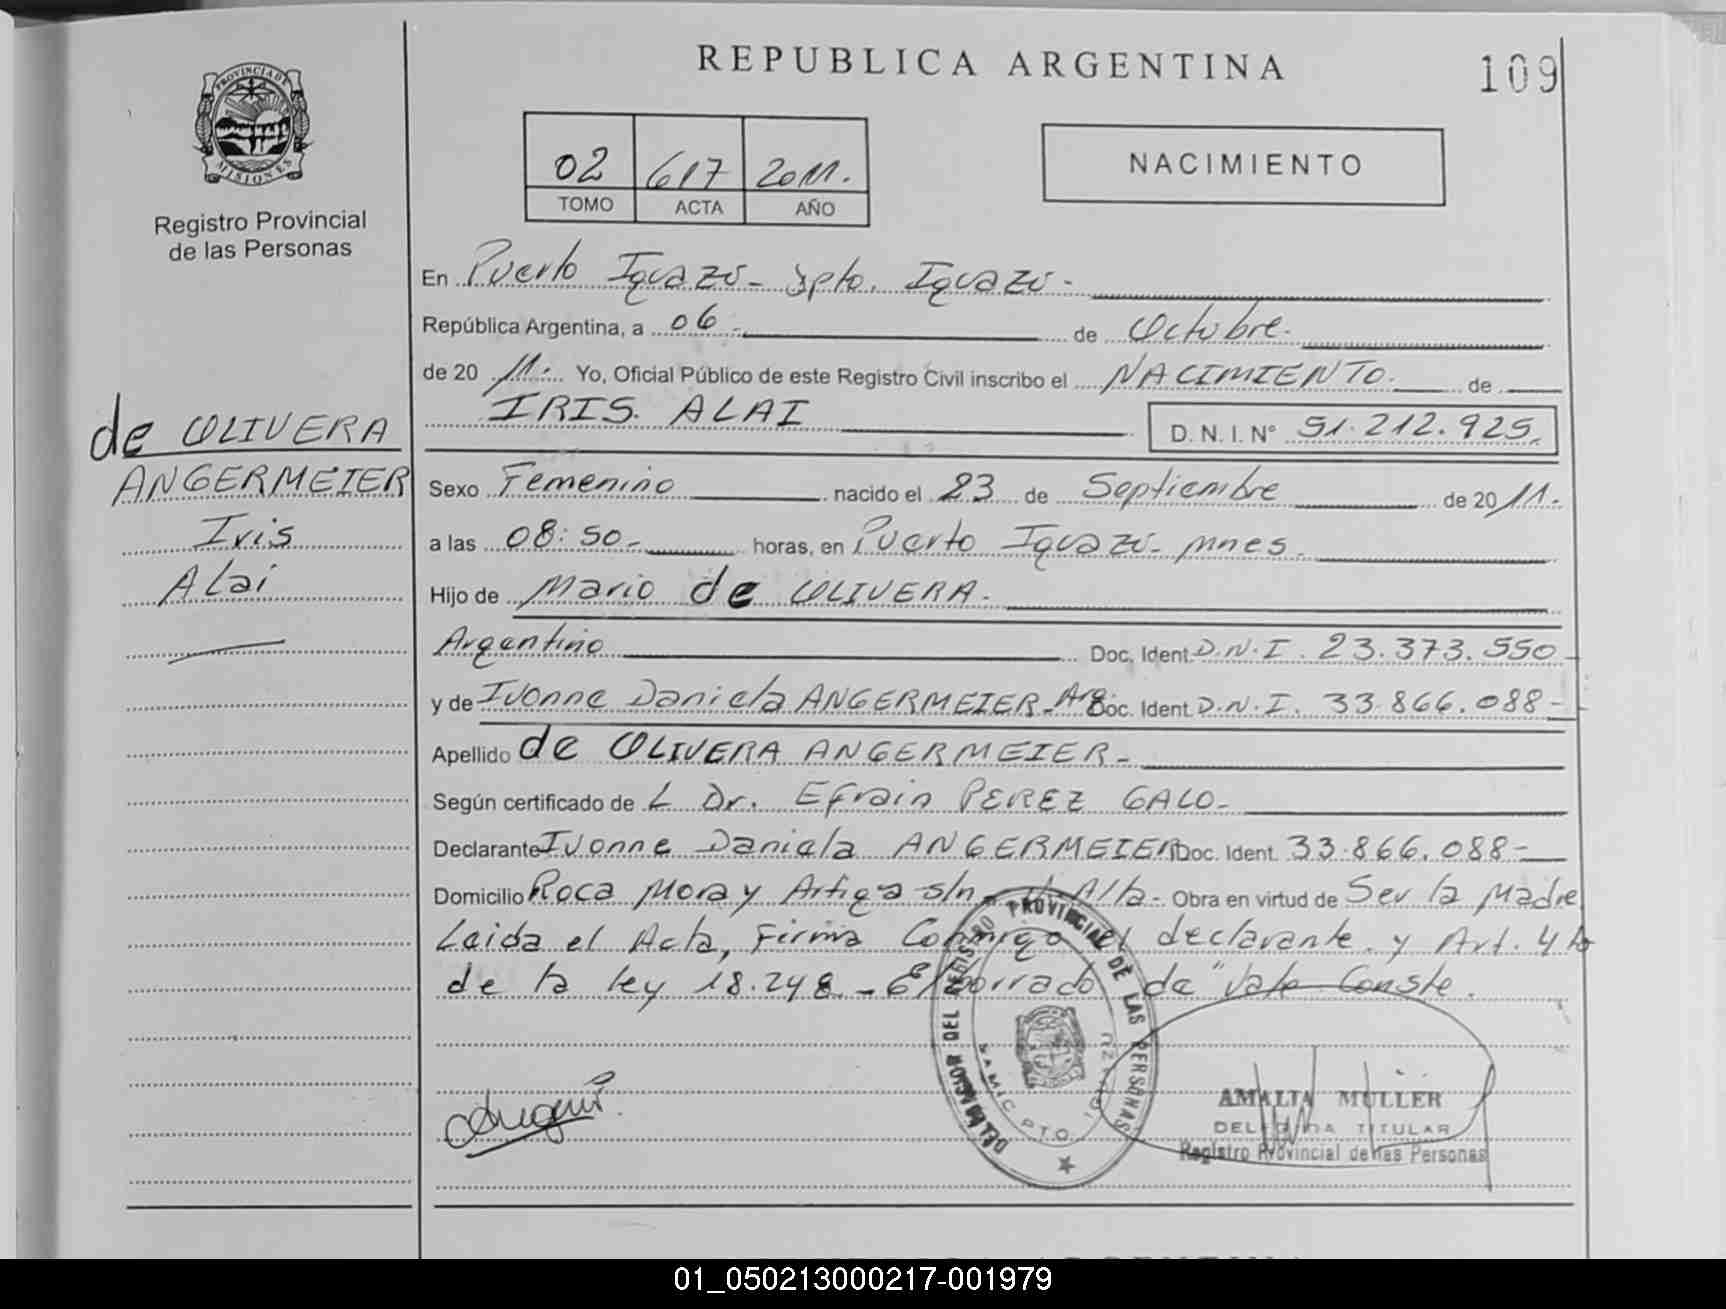 REPUBLICA ARGENTINA
109
PROVINCIA DE
MISIONES
Registro Provincial
de las Personas
02 617 2011.
TOMO ACTA AÑO
NACIMIENTO
En Puerto Iguazú - Dpto. Iguazú -
República Argentina, a 06 - de Octubre.
de 20 11. Yo, Oficial Público de este Registro Civil inscribo el NACIMIENTO de
IRIS. ALAI D. N. I. N° 51.212.925.
de OLIVERA
ANGERMEIER
Iris
Alai
Sexo Femenino nacido el 23 de Septiembre de 20 11.
a las 08:50 - horas, en Puerto Iguazú - mnes.
Hijo de Mario de OLIVERA -
Argentino Doc. Ident. D.N.I. 23.373.550 -
y de Ivonne Daniela ANGERMEIER - Arg. Doc. Ident. D.N.I. 33.866.088 -
Apellido de OLIVERA ANGERMEIER -
Según certificado de L Dr. Efrain PEREZ GALO -
Declarante Ivonne Daniela ANGERMEIER Doc. Ident. 33.866.088 -
Domicilio Roca Mora y Artiga s/n - Alta - Obra en virtud de Ser la Madre
Leida el Acta, Firma Conmigo el declarante. y Art. 4 to
de la ley 18.248 - El borrado "de" Vale Conste.
DELEGACION DEL REGISTRO PROVINCIAL DE LAS PERSONAS
SAMIC PTO. IGUAZU
AMALIA MULLER
DELEGADA TITULAR
Registro Provincial de las Personas
01_050213000217-001979